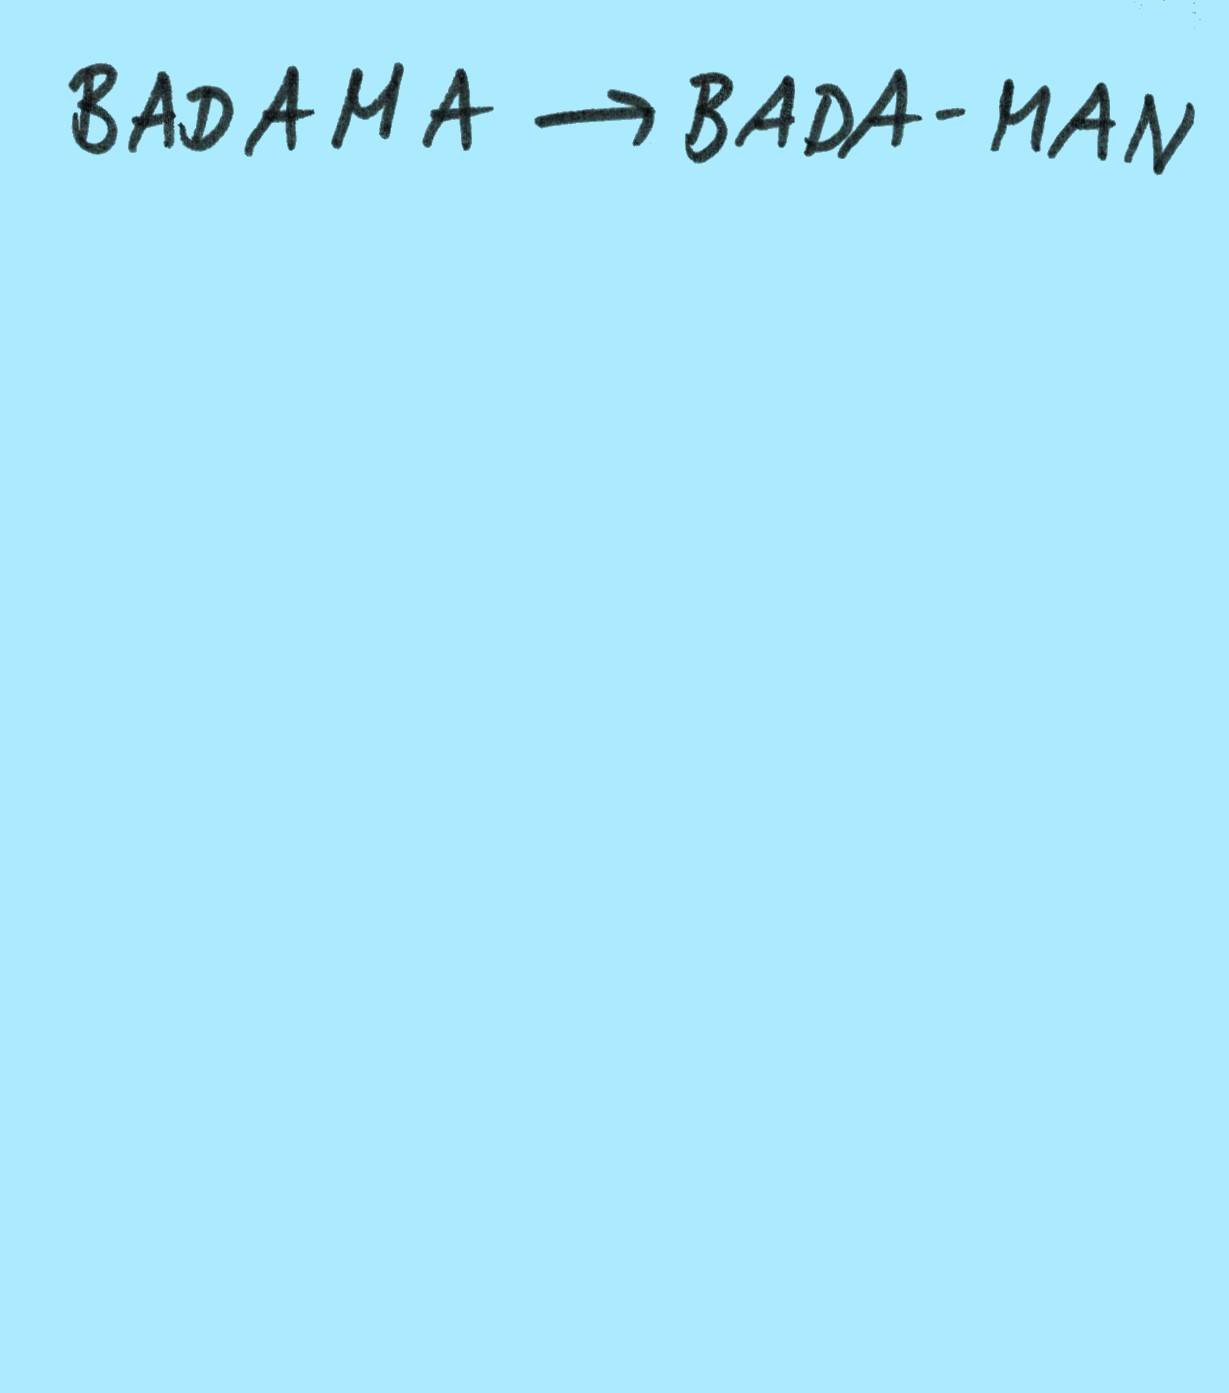 BADAMA → BADA-MAN